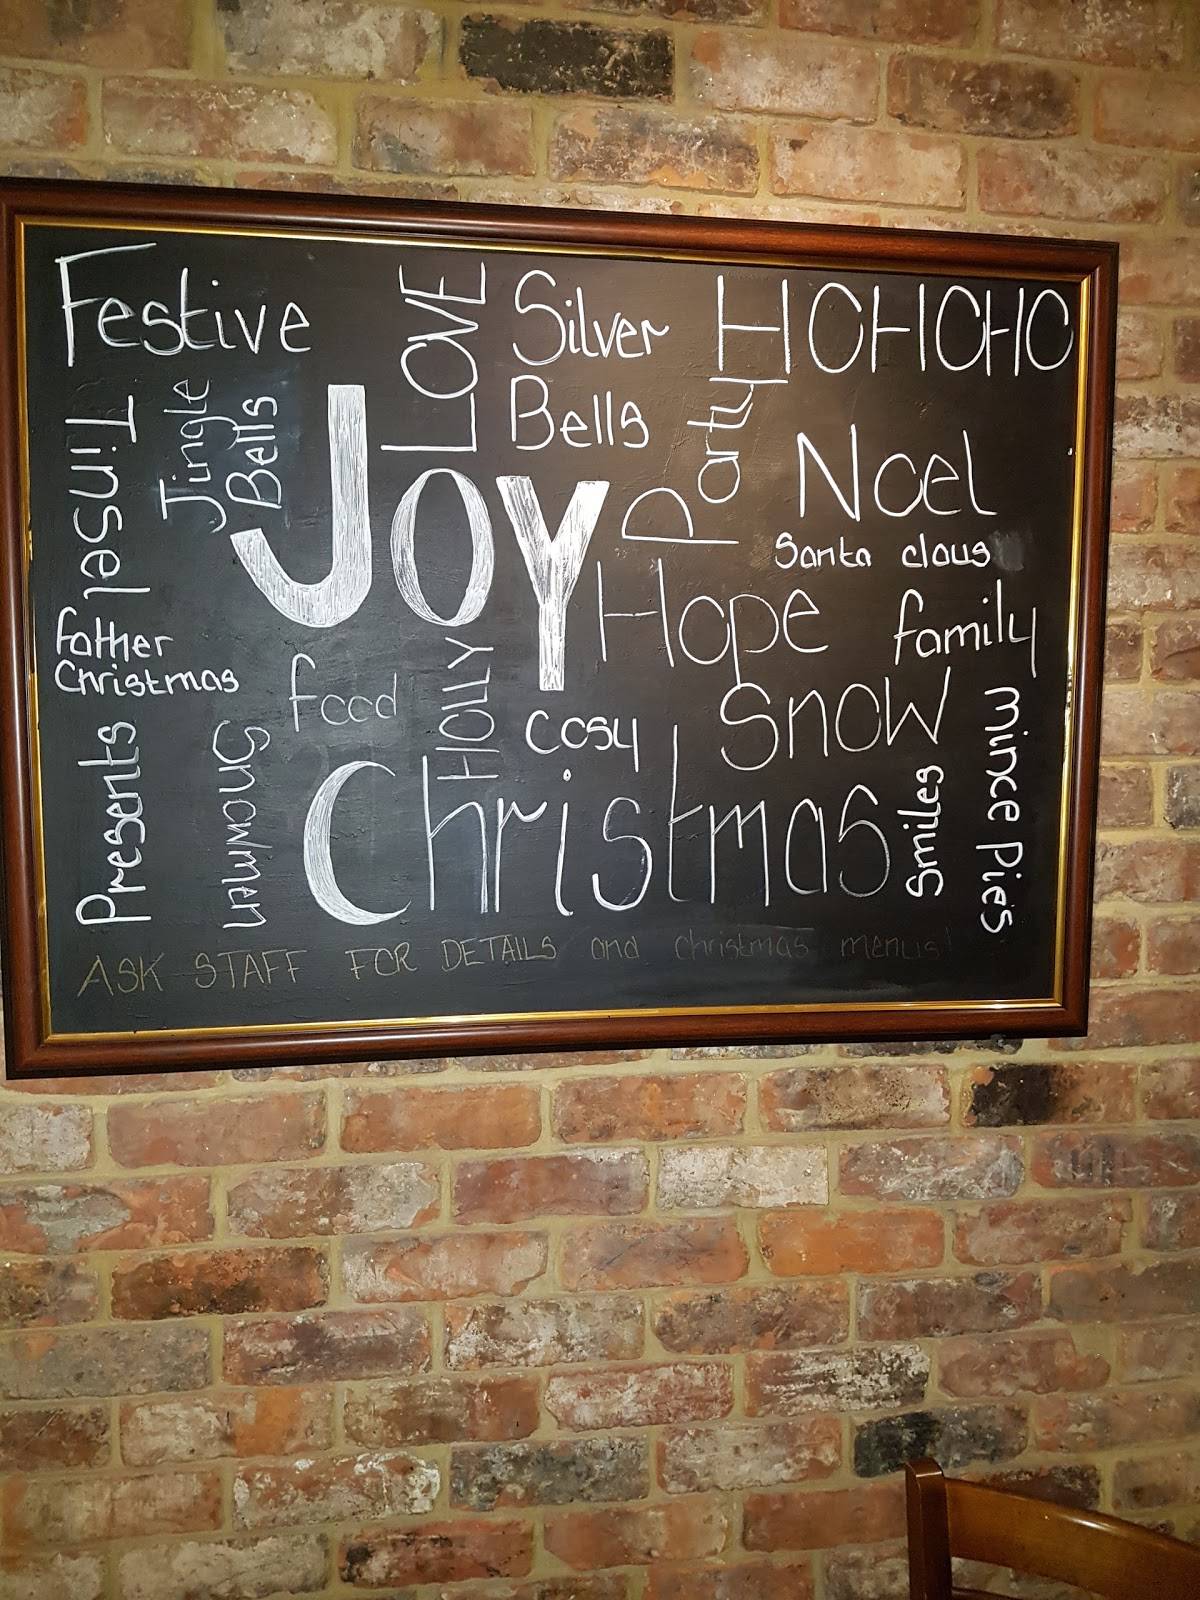 Festive
LOVE
Silver
Bells
HOHOHO
Tinsel
Jingle
Bells
JOY
Party
Noel
Santa claus
Hope
family
father
Christmas
food
HOLLY
cosy
Snow
mince Pies
Presents
Snowman
Christmas
Smiles
ASK STAFF FOR DETAILS and christmas menus!